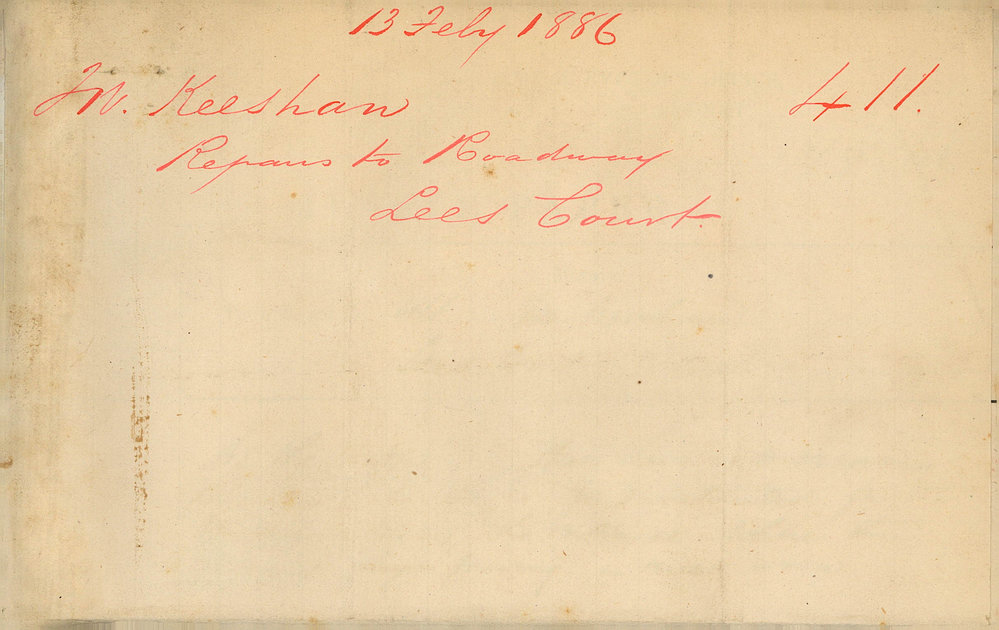 13 Feby 1886
M. Keeshan 411.
Repairs to Roadway
Lees Court.